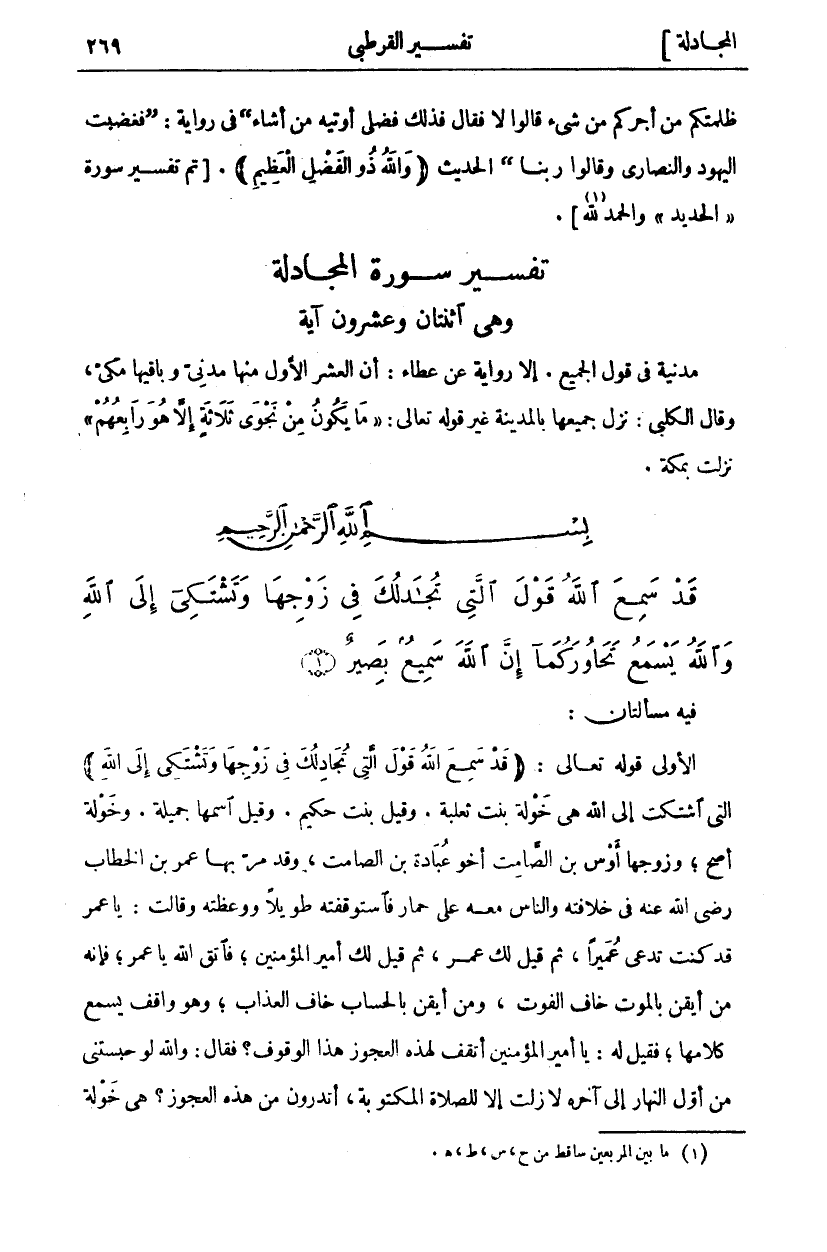 المجادلة ] تفسير القرطبى ٢٦٩
ظلمتكم من أجركم من شىء قالوا لا فقال فذلك فضلى أوتيه من أشاء” فى رواية : ”فغضبت
اليهود والنصارى وقالوا ربنا “ الحديث ﴿ وَاللهُ ذُو الفَضْلِ الْعَظِيمِ ﴾ . [ تم تفسير سورة
« الحديد » والحمد لله (١) ] .
تفسير سورة المجادلة
وهى ٱثنتان وعشرون آية
مدنية فى قول الجميع . إلا رواية عن عطاء : أن العشر الأول منها مدنىّ وباقيها مكىّ ،
وقال الكلبى : نزل جميعها بالمدينة غير قوله تعالى : « مَا يَكُونُ مِنْ نَجْوَى ثَلَاثَةٍ إِلَّا هُوَ رَابِعُهُمْ »
نزلت بمكة .
بِسْمِ ٱللَّهِ ٱلرَّحْمَٰنِ ٱلرَّحِيمِ
قَدْ سَمِعَ ٱللَّهُ قَوْلَ ٱلَّتِى تُجَٰدِلُكَ فِى زَوْجِهَا وَتَشْتَكِىٓ إِلَى ٱللَّهِ
وَٱللَّهُ يَسْمَعُ تَحَاوُرَكُمَآ إِنَّ ٱللَّهَ سَمِيعٌۢ بَصِيرٌ ﴿١﴾
فيه مسألتان :
الأولى قوله تعالى : ﴿ قَدْ سَمِعَ اللهُ قَوْلَ الَّتِى تُجَادِلُكَ فِى زَوْجِهَا وَتَشْتَكِى إِلَى اللهِ ﴾
التى ٱشتكت إلى الله هى خَوْلة بنت ثعلبة . وقيل بنت حكيم . وقيل ٱسمها جميلة . وخَوْلة
أصح ؛ وزوجها أَوْس بن الصَّامت أخو عُبَادة بن الصامت ، وقد مرّ بها عمر بن الخطاب
رضى الله عنه فى خلافته والناس معه على حمار فٱستوقفته طويلاً ووعظته وقالت : يا عمر
قد كنت تدعى عُمَيراً ، ثم قيل لك عمر ، ثم قيل لك أمير المؤمنين ؛ فٱتق الله يا عمر ؛ فإنه
من أيقن بالموت خاف الفوت ، ومن أيقن بالحساب خاف العذاب ؛ وهو واقف يسمع
كلامها ؛ فقيل له : يا أمير المؤمنين أتقف لهذه العجوز هذا الوقوف ؟ فقال : والله لو حبستنى
من أوّل النهار إلى آخره لا زلت إلا للصلاة المكتوبة ، أتدرون من هذه العجوز ؟ هى خَوْلة
(١) ما بين المربعين ساقط من ح ، س ، ط ، ه .